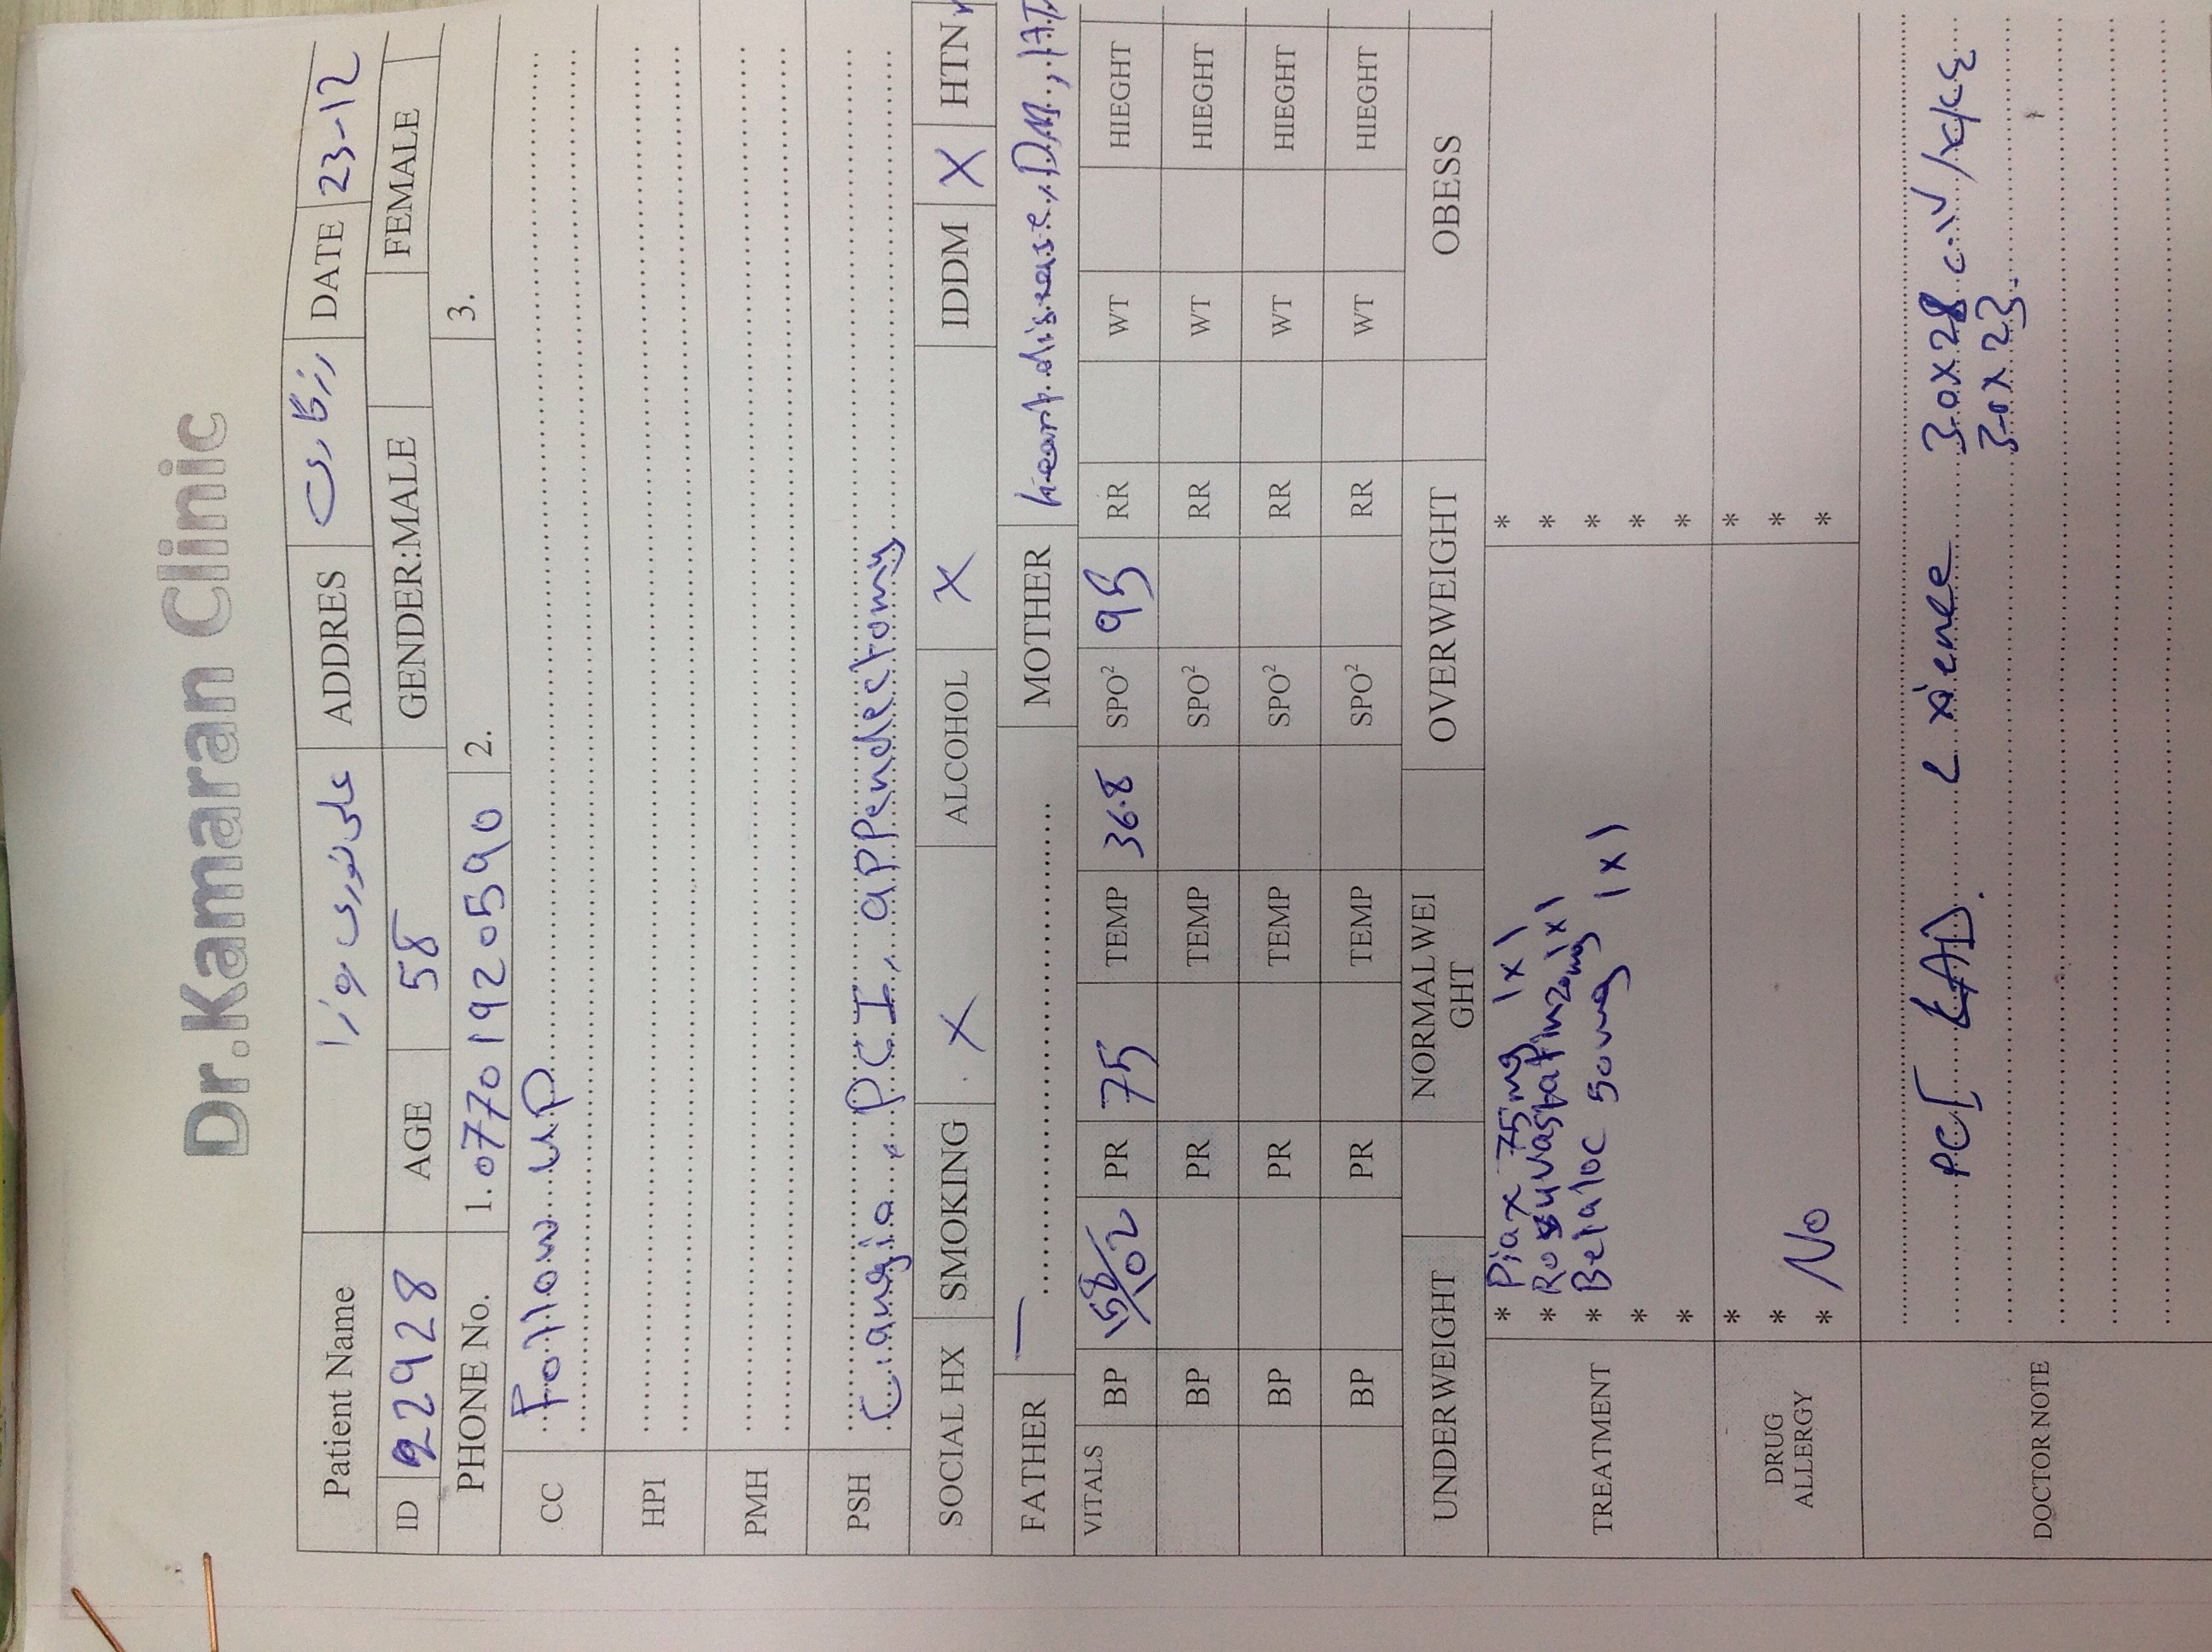 Dr.Kamaran Clinic
Patient Name علی نوری میرزا ADDRES رزگاری DATE 23-12
ID 22928 AGE 58 GENDER:MALE FEMALE
PHONE No. 1. 0770 192 0590 2. 3.
CC Follow up
HPI
PMH
PSH C.angio, PCI, appendectomy
SOCIAL HX SMOKING X ALCOHOL X IDDM X HTN
FATHER — MOTHER heart disease, DM, HT
VITALS BP PR 75 TEMP 36.8 SPO² 95 RR WT HIEGHT
BP PR TEMP SPO² RR WT HIEGHT
BP PR TEMP SPO² RR WT HIEGHT
BP PR TEMP SPO² RR WT HIEGHT
UNDERWEIGHT NORMALWEI
GHT OVERWEIGHT OBESS
TREATMENT
* Piax 75mg 1x1 *
* Rosuvastatin 20mg 1x1 *
* Betaloc 50mg 1x1 *
* *
* *
DRUG
ALLERGY
* *
* *
* No *
DOCTOR NOTE
PCI LAD. 2 xience 3.0x28
3.0x23.